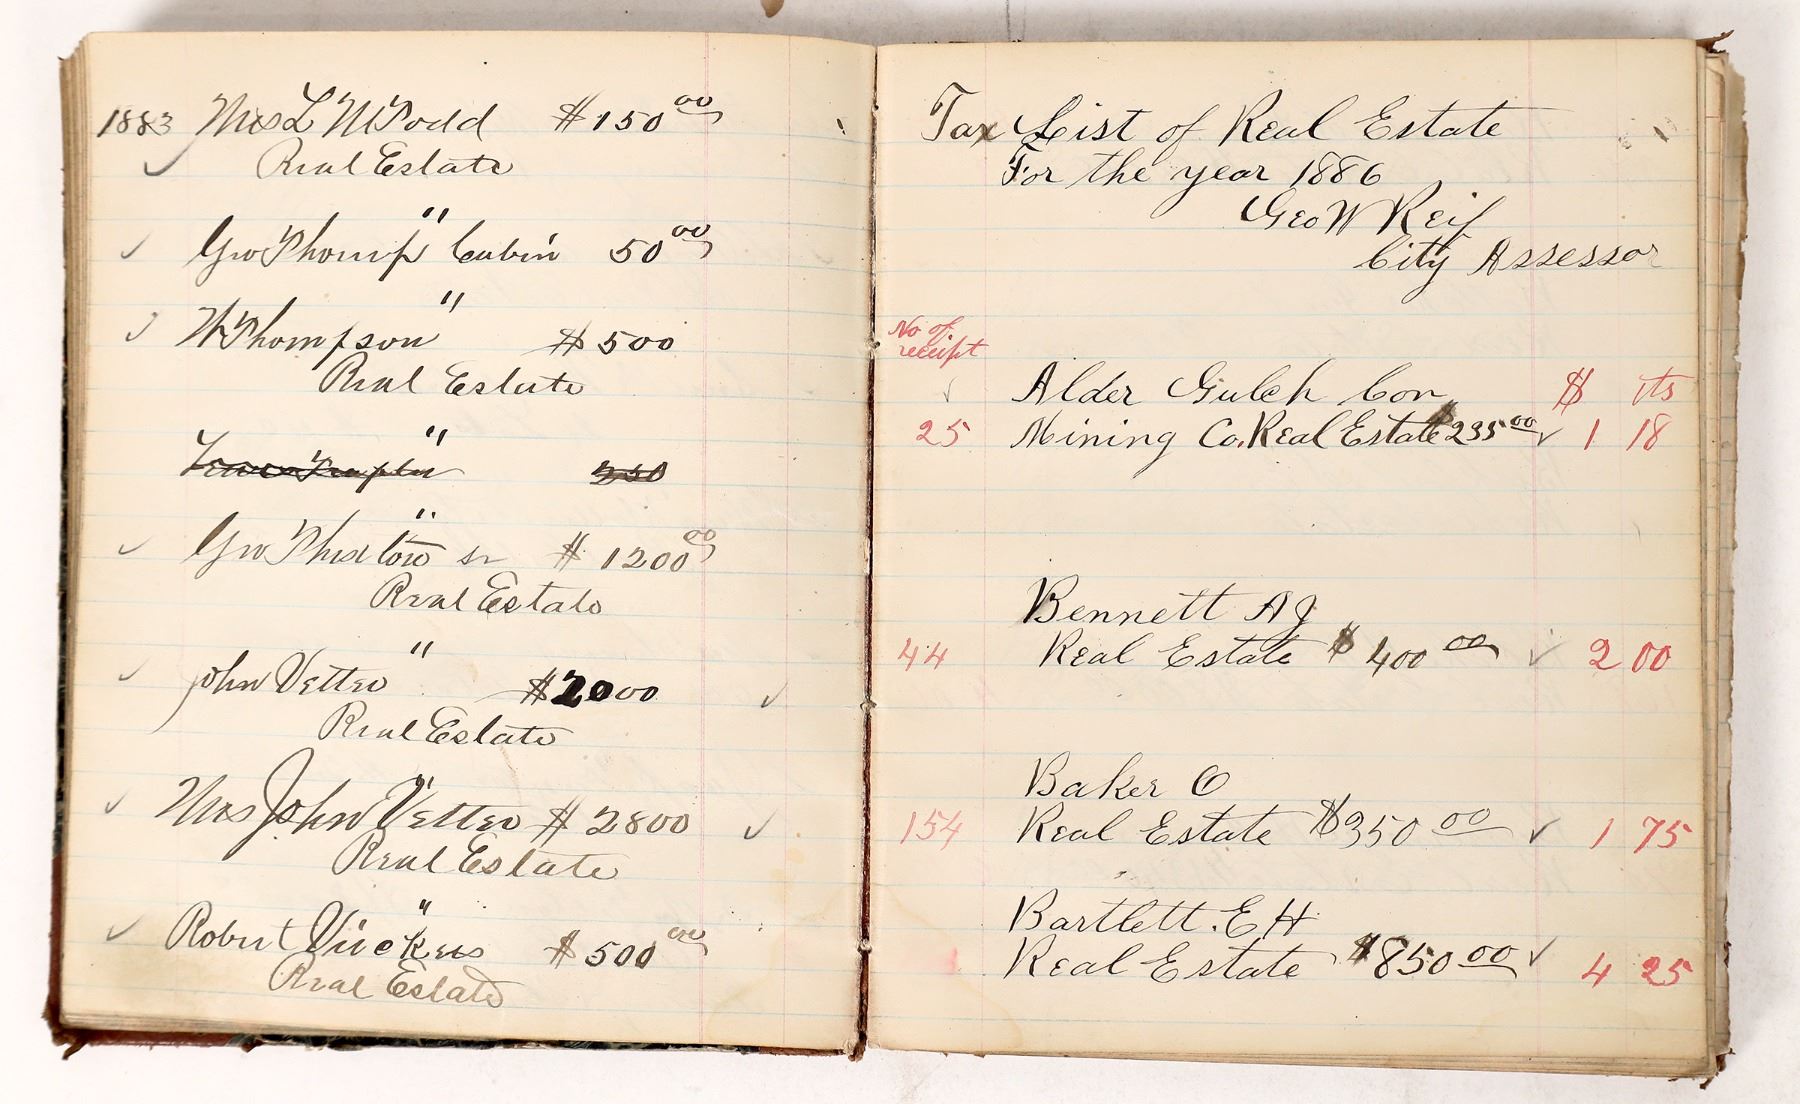 1883 Mrs L M Todd $150 00
Real Estate
"
Geo Thomp Cabin 50 00
"
W Thompson $500
Real Estate
"
250
"
Geo Thexton sr $1200 00
Real Estate
"
John Vetter $2000
Real Estate
"
Mrs John Vetter $2800
Real Estate
"
Robert Vickers $500 00
Real Estate
Tax List of Real Estate
For the year 1886
Geo W Reif
City Assessor
No of
receipt
Alder Gulch Con $ cts
25 Mining Co. Real Estate $235 00 1 18
Bennett A J
44 Real Estate $400 00 2 00
Baker O
154 Real Estate $350 00 1 75
Bartlett. E H
Real Estate $850 00 4 25